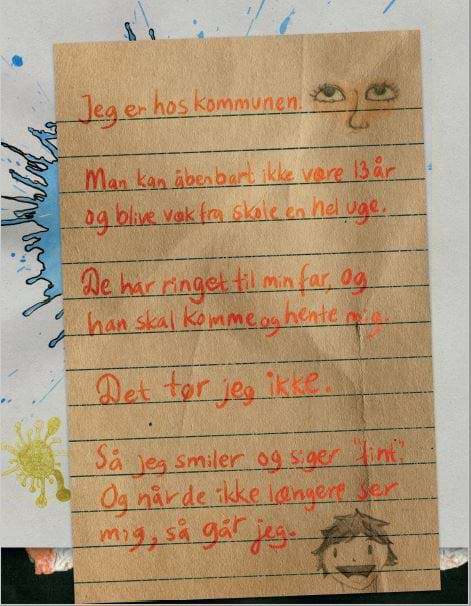 Jeg er hos kommunen.
Man kan åbenbart ikke være 13 år
og blive væk fra skole en hel uge.
De har ringet til min far, og
han skal komme og hente mig.
Det tør jeg ikke.
Så jeg smiler og siger "fint".
Og når de ikke længere ser
mig, så går jeg.